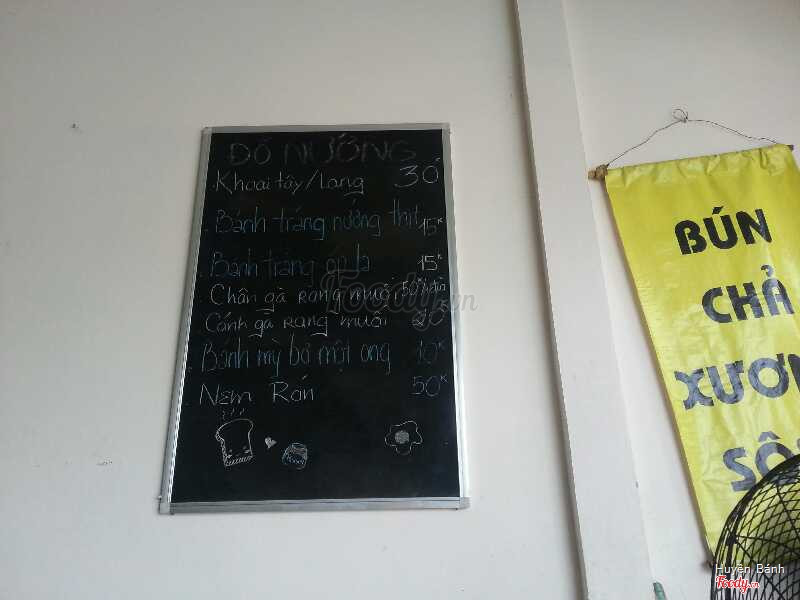 ĐỒ NƯỚNG
Khoai tây/Lang 30
Bánh tráng nướng thịt 15K
Bánh tráng ốp la 15K
Chân gà rang muối
Cánh gà rang muối
Bánh mỳ bơ mật ong 10K
Nem Rán 50K
Honey
Foody.vn
BÚN
CHẢ
XƯƠN
Huyền Bánh
Foody.vn